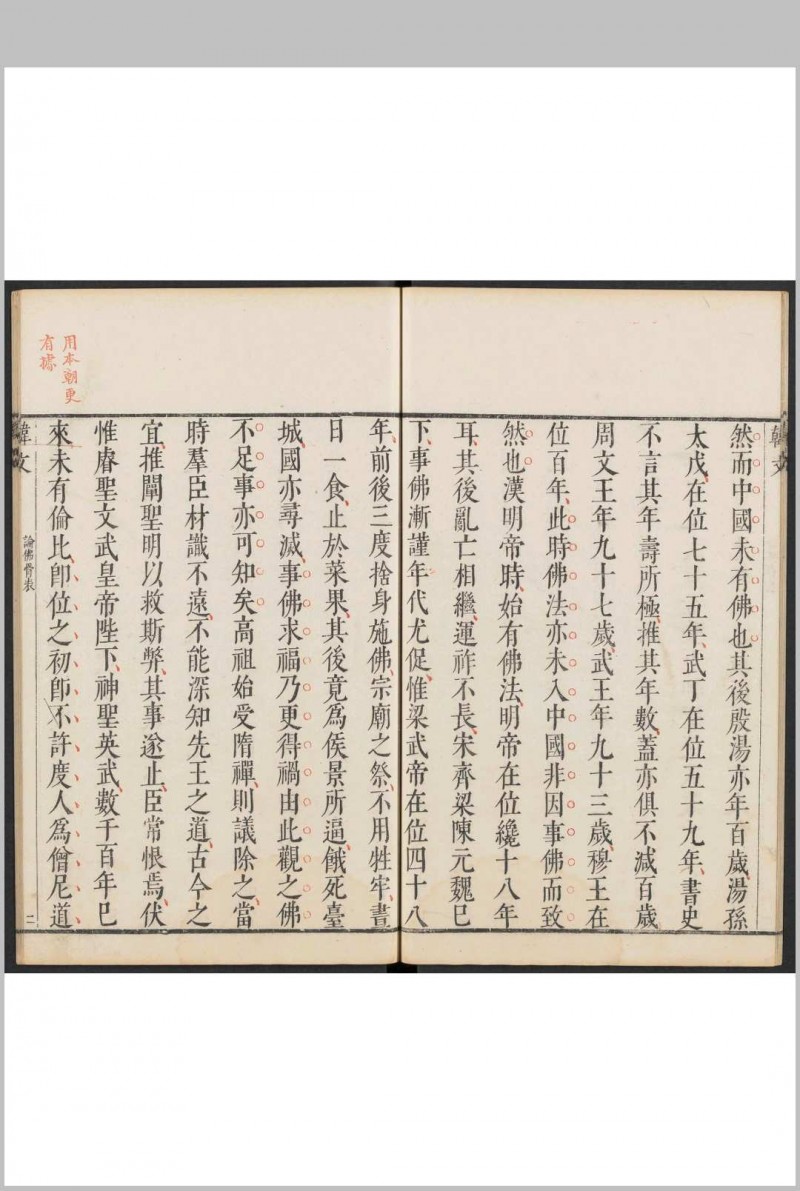 韓文
然而中國未有佛也其後殷湯亦年百歲湯孫
太戊在位七十五年武丁在位五十九年書史
不言其年壽所極推其年數蓋亦俱不減百歲
周文王年九十七歲武王年九十三歲穆王在
位百年此時佛法亦未入中國非因事佛而致
然也漢明帝時始有佛法明帝在位纔十八年
耳其後亂亡相繼運祚不長宋齊梁陳元魏已
下事佛漸謹年代尤促惟梁武帝在位四十八
年前後三度捨身施佛宗廟之祭不用牲牢晝
日一食止於菜果其後竟爲侯景所逼餓死臺
城國亦尋滅事佛求福乃更得禍由此觀之佛
不足事亦可知矣高祖始受隋禪則議除之當
時羣臣材識不遠不能深知先王之道古今之
宜推闡聖明以救斯弊其事遂止臣常恨焉伏
惟睿聖文武皇帝陛下神聖英武數千百年已
來未有倫比卽位之初卽不許度人爲僧尼道
用本朝更
有據
韓文
論佛骨表
二